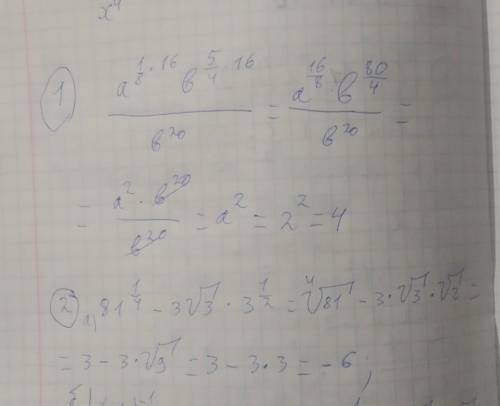 x⁴
1) (a^(1/8 · 16) b^(5/4 · 16)) / b^20 = (a^(16/8) b^(80/4)) / b^20 =
= (a^2 · b^20) / b^20 = a^2 = 2^2 = 4
2) а) 81^(1/4) − 3√3 · 3^(1/2) = ⁴√81 − 3 · √3 · √3 =
= 3 − 3 · √9 = 3 − 3 · 3 = −6 ;